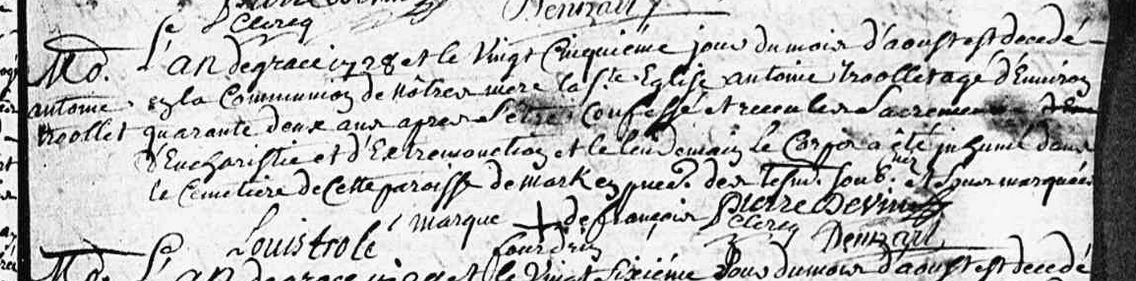 Clercq Denizart
Md. L'an de grace 1728 et le vingt cinquiéme jour du mois d'aoust est decedé
antoine en la Communion de nôtre mere la Ste. Eglise antoine troollet agé d'Environ
troollet quarante deux ans apres s'être Confessé et receu les Sacremens
d'Eucharistie et d'Extremonction et le lendemain le Corps a été inhumé dans
le Cemetiere de Cette paroisse de Mark en pnce. des tesm. soub. et sousmarqués
Louis trole marque de françois Pierre Devin
fourdrin Clercq Denizart
Md. L'an de grace 1728 et le Vingt Sixiéme Jour du mois d'aoust est decedé